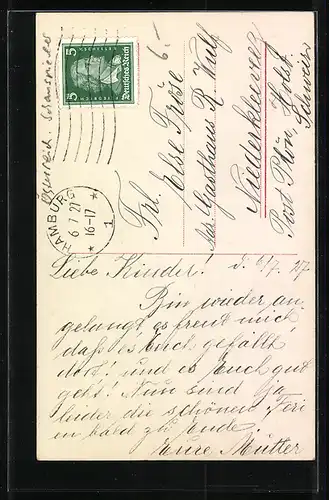 Österreich. Schauspieler
6.-
5 Deutsches Reich 5
HAMBURG
6 7 27
* 16-17 *
1
Frl.
Else Fröse
bei Gasthaus R. Wulf
Niederkleveez
Post Plön, Holst.
Schweiz
Liebe Kinder! d. 6/7. 27
Bin wieder an
gelangt es freut mich
daß es Euch gefällt
dort! und es Euch gut
geht! Nun sind ja
leider die schönen Feri
en bald zu Ende.
Eure Mutter